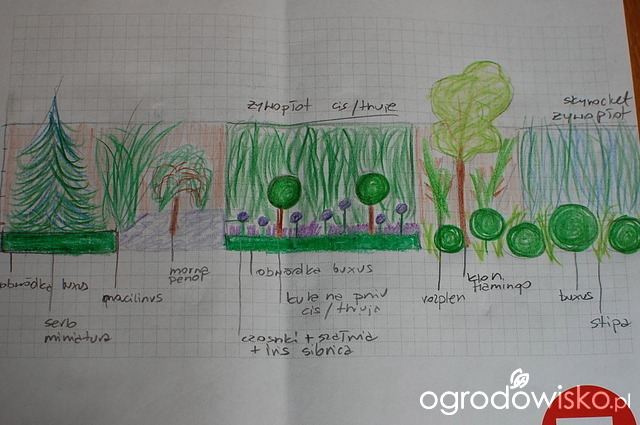 żywopłot cis/thuje
skyrocket
żywopłot
obwódka buxus
serb
miniatura
macilinus
morwa
pendl
obwódka buxus
kule na pniu
cis/thuja
czosnki + szałwia
+ iris sibrica
rozplen
klon
flamingo
buxus
stipa
ogrodowisko.pl